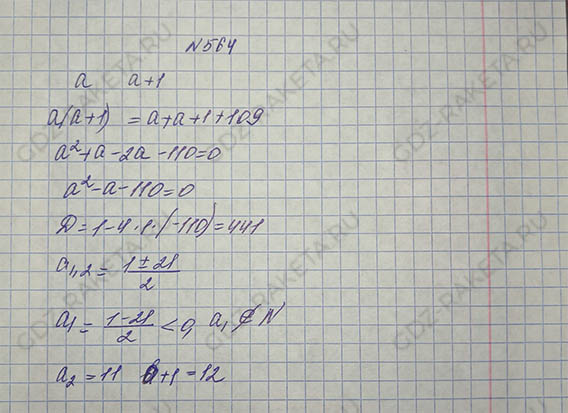 N564
a a+1
a(a+1) = a+a+1+109
a²+a-2a-110=0
a²-a-110=0
D=1-4·1·(-110)=441
a₁,₂ = (1±21)/2
a₁ = (1-21)/2 <0, a₁ ∉ N
a₂ = 11 a+1=12
GDZ-RAKETA.RU
GDZ-RAKETA.RU
GDZ-RAKETA.RU
GDZ-RAKETA.RU
GDZ-RAKETA.RU
GDZ-RAKETA.RU